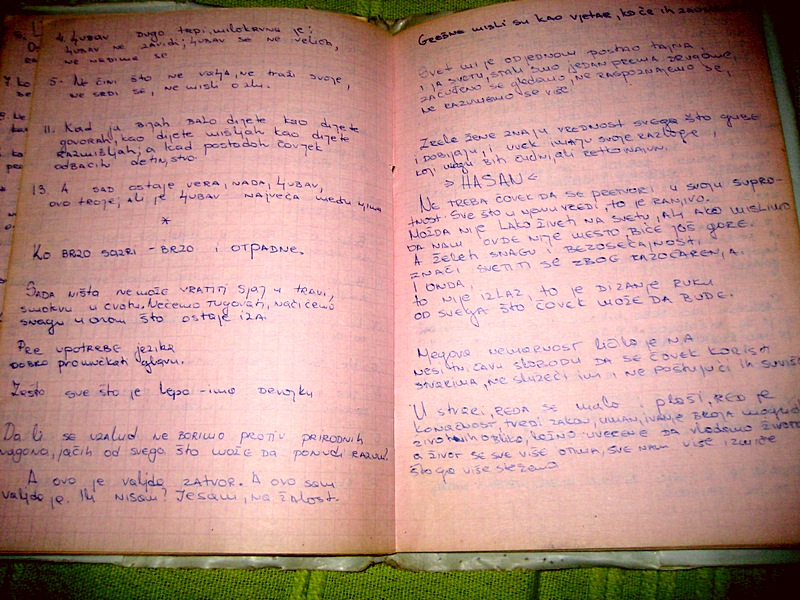 4. Ljubav dugo trpi, milokrvna je;
ljubav ne zavidi; ljubav se ne veliča,
ne nadima se
5. Ne čini što ne valja, ne traži svoje,
ne srdi se, ne misli o zlu.
11. Kad ja bijah bado dijete kao dijete
govorah, kao dijete mišljah kao dijete
razmišljah; a kad postadoh čovjek
odbacih detinjstvo.
13. A sad ostaje vera, nada, ljubav,
ovo troje; ali je ljubav najveća među njima
*
Ko brzo sazri – brzo i otpadne.
Sada ništa ne može vratiti sjaj u travi,
smokvu u cvatu. Nećemo tugovati, naći ćemo
snagu u onom što ostaje iza.
Pre upotrebe jezika
dobro promućkati glavu.
Zašto sve što je lepo – ima devojku
Da li se uzalud ne borimo protiv prirodnih
nagona, jačih od svega što može da ponudi razum?
A ovo je valjda zatvor. A ovo sam
valjda ja. Ili nisam? Jesam, na žalost.
Grešne misli su kao vjetar, ko će ih
Svet mi je odjednom postao tajna,
i ja svetu, stali smo jedan prema drugome,
začuđeno se gledamo, ne raspoznajemo se,
ne razumemo se više
Zrele žene znaju vrednost svega što gube
i dobijaju, i uvek imaju svoje razloge,
koji mogu biti čudni, ali retko naivni.
> HASAN <
Ne treba čovek da se pretvori u svoju supro-
tnost. Sve što u njemu vredi, to je ranjivo.
Možda nije lako živeti na svetu, ali ako mislimo
da nam ovde nije mesto, biće još gore.
A želeti snagu i bezosećajnost,
znači svetiti se zbog razočarenja.
I onda,
to nije izlaz, to je dizanje ruku
od svega što čovek može da bude.
Njegova nemarnost ličila je na
nesitničavu slobodu da se čovek koristi
stvarima, ne služeći im i ne poštujući ih suviše
U stvari, reda se malo i plaši, red je
konačnost, tvrdi zakon, umanjivanje broja mogućih
životnih oblika, lažno uverenje da vladamo životom
a život se sve više otima, sve nam više izmiče
što ga više stežemo